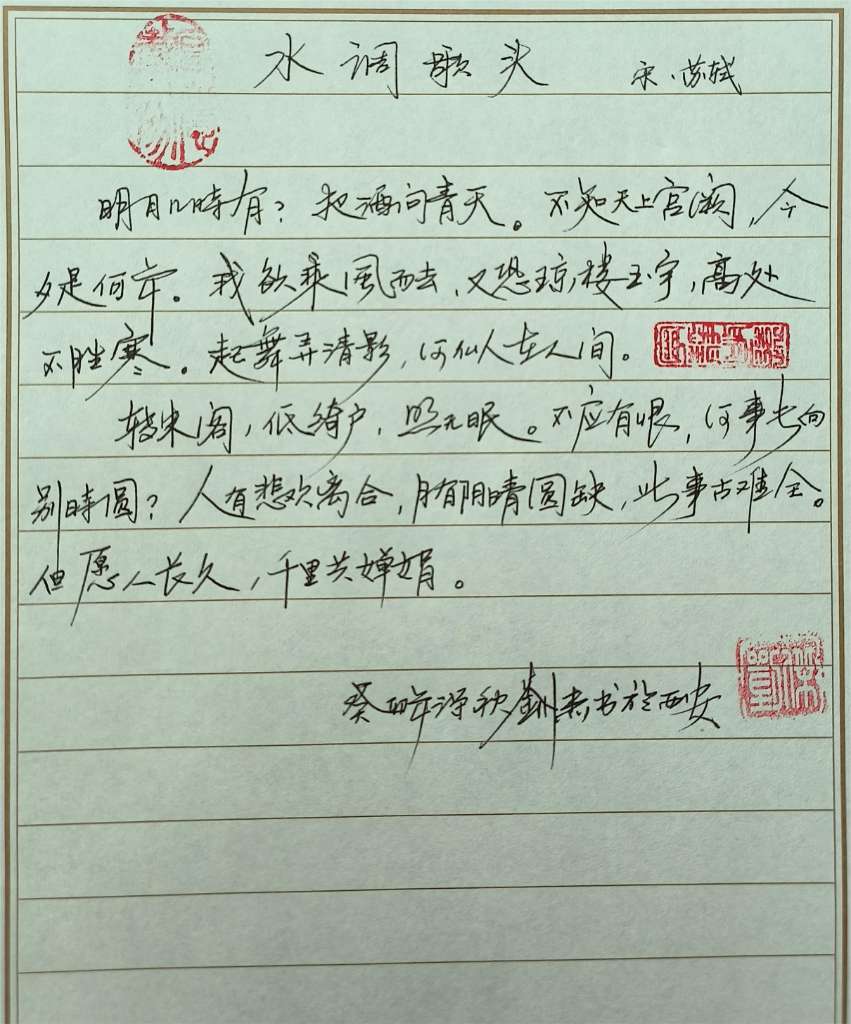 水调歌头 宋·苏轼
明月几時有？把酒问青天。不知天上宫阙，今
夕是何年。我欲乘風而去，又恐琼楼玉宇，高处
不胜寒。起舞弄清影，何似人在人间。
转朱阁，低绮户，照无眠。不应有恨，何事长向
别時圆？人有悲欢离合，月有阴晴圆缺，此事古难全。
但愿人长久，千里共婵娟。
癸卯年深秋劉 书於西安